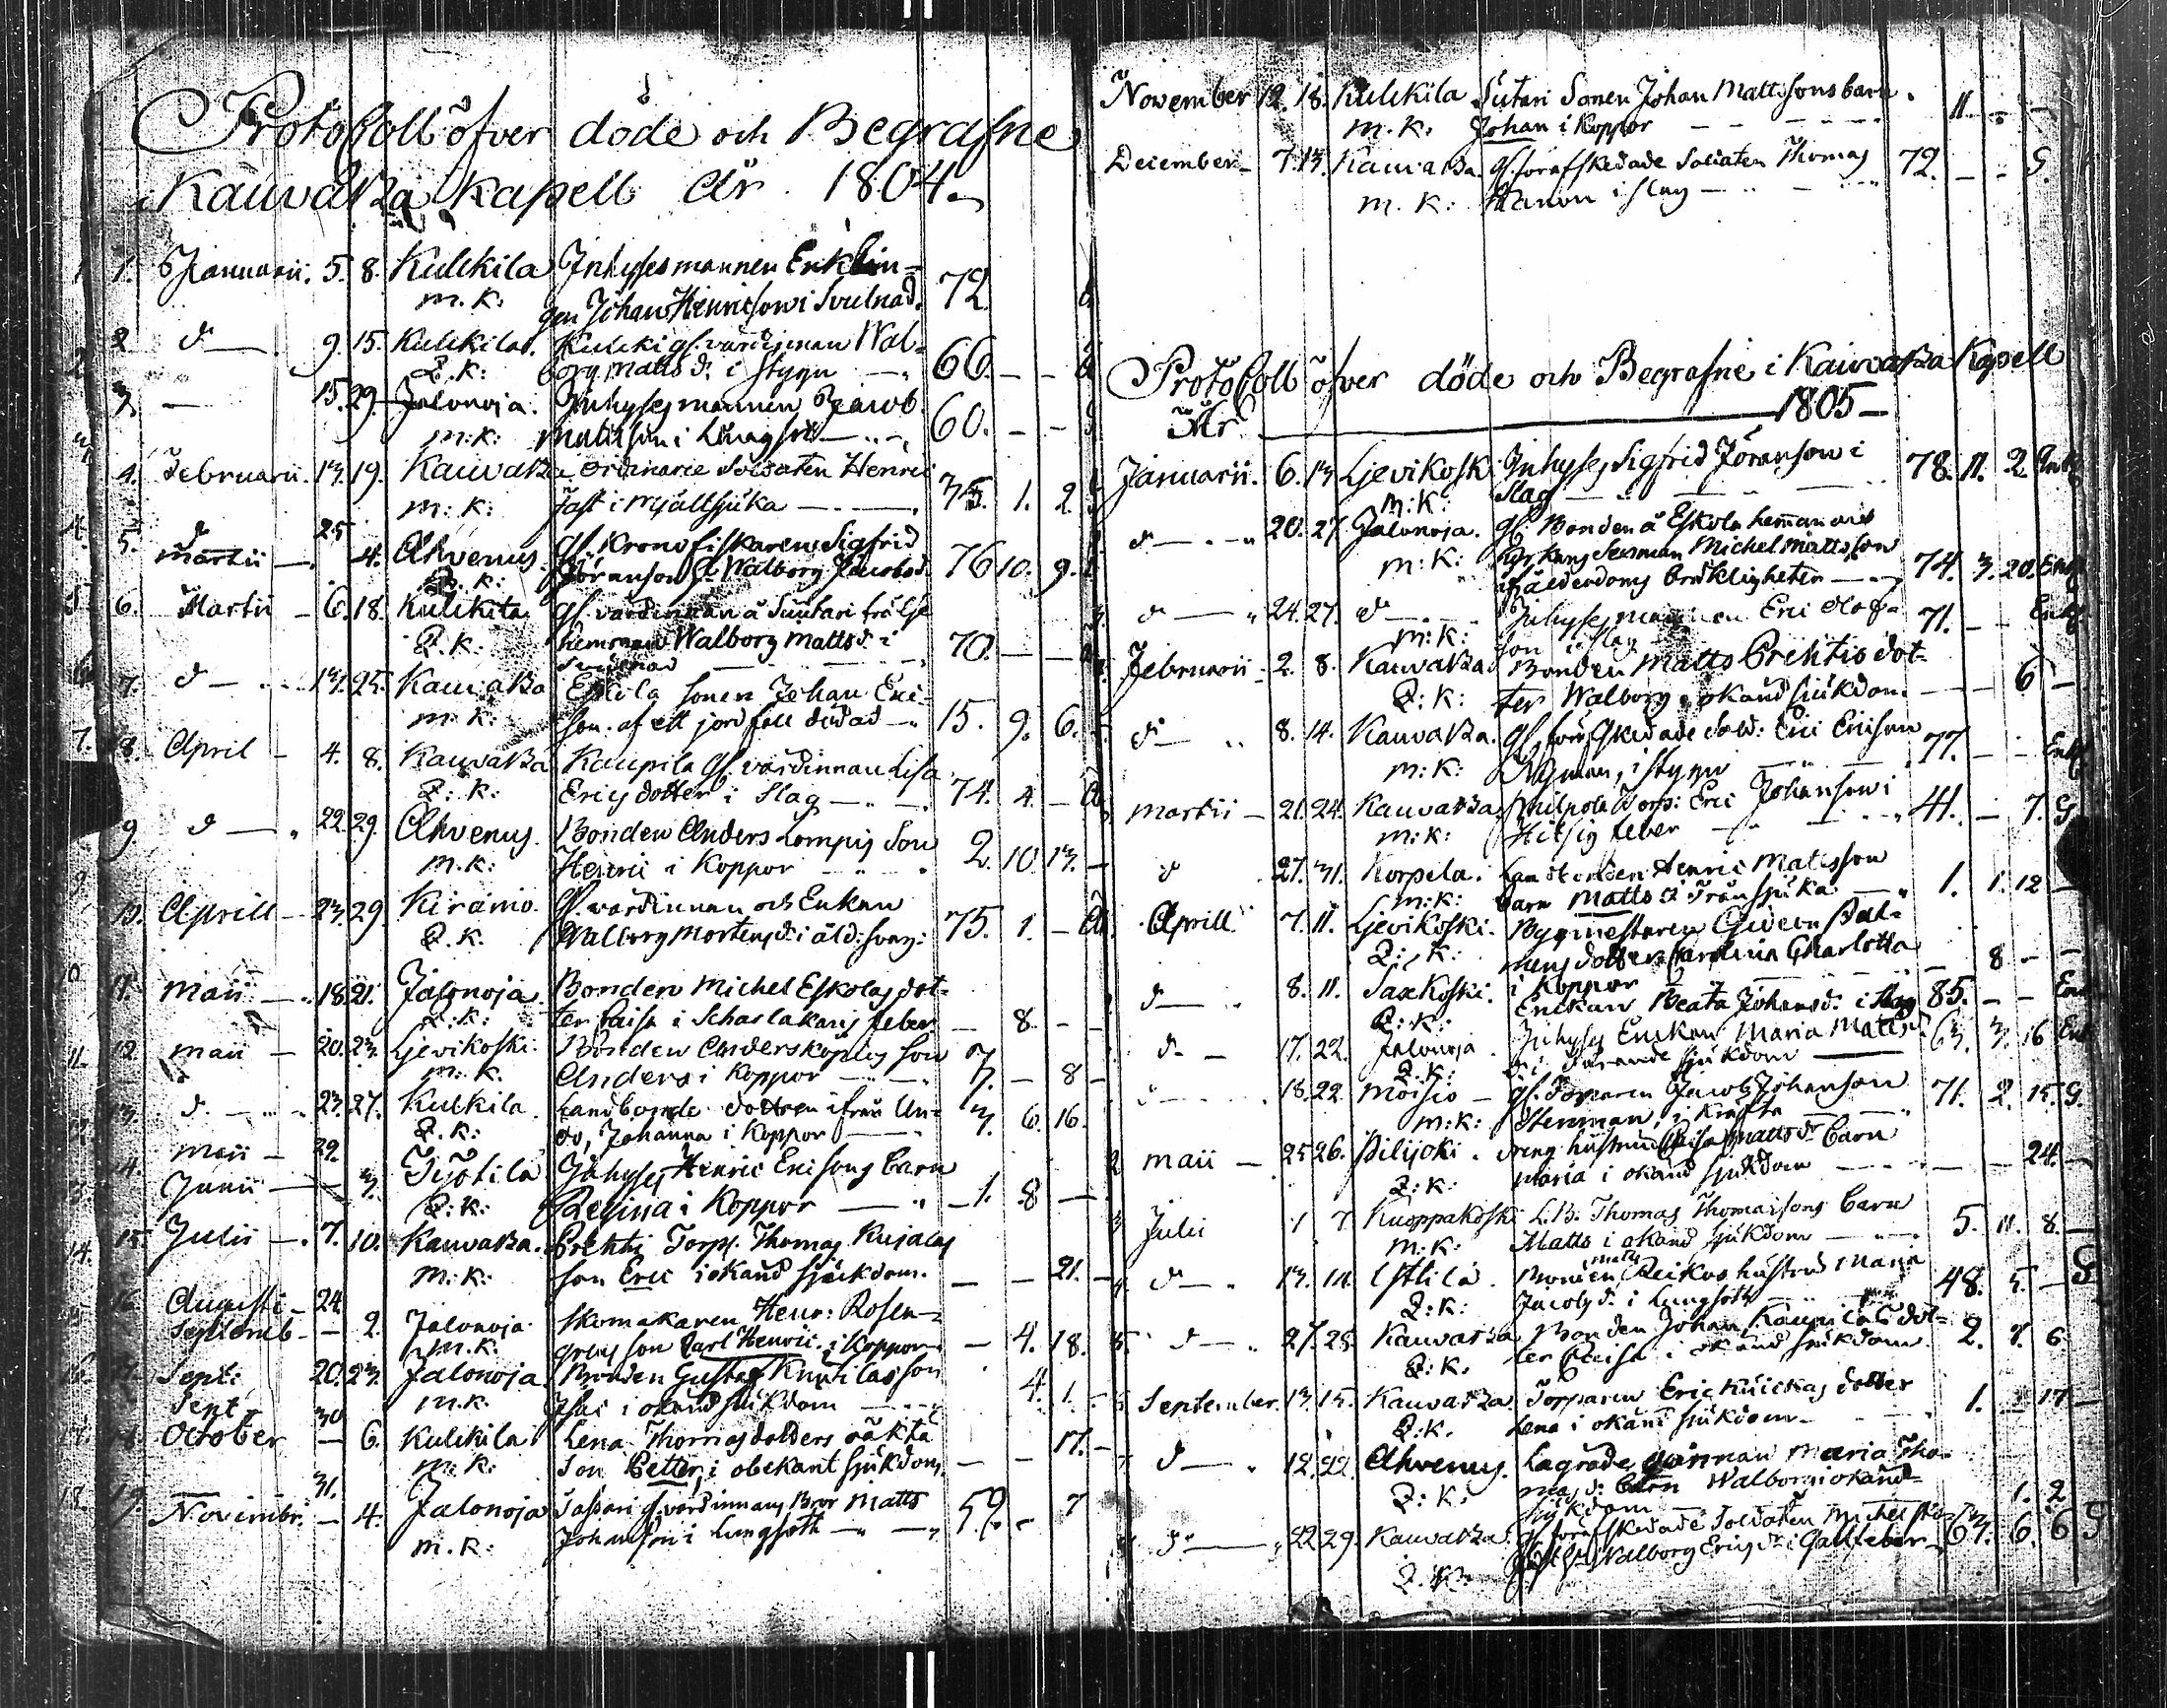 Protokoll öfver döde och Begrafne
i Kauvatza Kapell År 1804.
1. Januarii. 5. 8. Kulkkila Inhysesmannen Enklin-
m.k: gen Johan Henricson i Svulnad. 72.
2 d— 9. 15. Kulkkila. Kulcki gl. värdinnan Wal-
Q.k: borg Matts d: i styng 66. — —
3. — 15. 29. Jalonoja. Inhysesmannen Jacob
m:k: Mattsson i Lungsot 60. — —
4. Februarii. 13. 19. Kauvatza ordinarie Soldaten Henric
m:k: Fast i Mjältsjuka 35. 1. 2.
5. d 25
Martii — 4. Ahvenus. gl. Krono fiskaren Sigfrid
Q.k: Jöransson H: Walborg Jacobsd: 76 10. 9.
6. Martii — 6. 18. Kulkkila gl. värdinnan å Suutari
Q.k: hemman Walborg Mattsd: i
Svulnad 70. — —
7. d — 13. 25. Kauvatza Eskola sonen Johan Eric-
m.k: son. af ett jordfall dödad 15. 9. 6.
8. April — 4. 8. Kauvatza Kaupila gl. värdinnan Lisa
Q:k: Erics dotter i Slag 74. 4. —
9 d — 22. 29. Ahvenus. Bonden Anders Lompis Son
m.k: Henric i Koppor 2. 10 13. —
10. Aprill — 23. 29. Kiranio. gl. värdinnan och Enkan
Q.k. Walborg Mortensd: i åld: svag: 75. 1. —
11. Maii — 18. 21. Jalonoja. Bonden Michel Eskolas dot-
Q:k: ter Caisa i Scharlakans feber — 8. — —
12. Maii — 20. 23. Ljevikoski. Bonden Anders Köpilys son
m:k. Anders i Koppor 3. — 8 —
13. d. — 23. 27. Kulkkila. Landbonde dottren ifrån Un-
Q.k: do, Johanna i Koppor 3. 6. 16.
14. Maii — 29.
Junii — 3. Työtilä Inhyses Henric Ericsons barn
Q:k: Regina i Koppor — 1. 8 —
15. Julii — 7. 10. Kauvatza. Prehti Torp. Thomas Kujalas
m:k: son Eric i okänd sjukdom. — — 21. —
16. Augusti — 24.
Septemb — — 2. Jalonoja. Skomakaren Henr: Rosen-
m.k. grens son Carl Henric i Koppor — 4. 18.
17. Sept: 20. 23. Jalonoja Bonden Gustaf Knutilas son
m.k. Isac i okänd sjukdom 4. 1. —
18. Sept. 30
October — 6. Kulkkila Lena Thomasdotters oäkta
m:k: son Petter i obekant sjukdom — — 17. —
19. 31.
Novembr: — 4. Jalonoja Sassari gl. värdinnans Bror Matts
m.k: Johansson i Lungsoth 59. — 7
November 12. 18. Kulkkila Sutari Sonen Johan Mattssons barn.
m.k. Johan i Koppor 11. — —
December — 7. 13. Kauvatza. gl. förafskedade Soldaten Thomas
m.k: i slag 72. — — G.
Protokoll öfver döde och Begrafne i Kauvatza Kapell
År 1805
Januarii. 6. 13 Ljevikosk. Inhyses Sigfrid Jöransson i
m:k: Slag 78. 11. 2 Enkl
d — 20. 27. Jalonoja. gl. Bonden å Eskola hemman
m:k: Michel Mattsson
i ålderdoms bräckligheter 74. 3. 20. Enkl
d — 24. 27. d — Inhysesmannen Eric Olofs-
m:k: son i slag 71. — — Enkl
Februarii — 2. 8. Kauvatza Bonden Matts Prehtis dot-
Q:k: ter Walborg okänd sjukdom — — 6 —
d — 8. 14. Kauvatza. gl. förafskedade Sold: Eric Ericsson
m:k: i styng 77. — — Enkl
Martii — 21. 24. Kauvatza Torp: Eric Johansson i
m:k: Hitsig feber 41. — 7. G
d 27. 31. Korpela. Landbonden Henric Mattsson
m:k: barn Matts i Tränsjuka 1. 1. 12 —
Aprill. 7. 11. Ljevikoski. Bygmestaren Gideon Pal-
Q:k: mens dotter Carolina Charlotta
i Koppor — 8 — —
d — 8. 11. Saxkoski. Enckan Beata Johansd: i slag 85. — — Enk
Q:k:
d. — 17. 22. Jalonoja. Inhyses Enckan Maria Mattsd:
Q.k: i tärande sjukdom 63. 3. 16 Enk
18. 22. Moisio — gl. Torparen Jacob Johansson
m:k: Stenman, i Kräfta 71. 2. 15. G.
Maii — 25 26. Piilijoki. dreng hustrun Caisa Matts d: barn
Q:k: Maria i okänd sjukdom — — 24. —
Julii 1 7 Kuoppakoski L.B. Thomas Thomassons barn
m:k: Matts i okänd sjukdom 5. 11. 8. —
d — 13. 14. Ostila. Bonden Matts Reikos hustru Maria
Q:k: Jacobs d. i Lungsoth 48. 5. — G
d — 27. 28. Kauvatza Bonden Johan Kaupilas dot-
Q:k. ter Caisa i okänd sjukdom 2. 7. 6.
September. 13. 15. Kauvatza Torparen Eric Kuickas dotter
Q:k. Lena i okänd sjukdom 1. — 17 —
d — 12. 22. Ahvenus. Lägrade qvinnan Maria Tho-
Q:k: mas d: barn Walborg i okänd
sjukdom 1. 2
d — 22 29. Kauvatza. gl. förafskedade Soldaten Michel
Q.k: Walborg Erics d: i Gallfeber 63. 6. 6 G